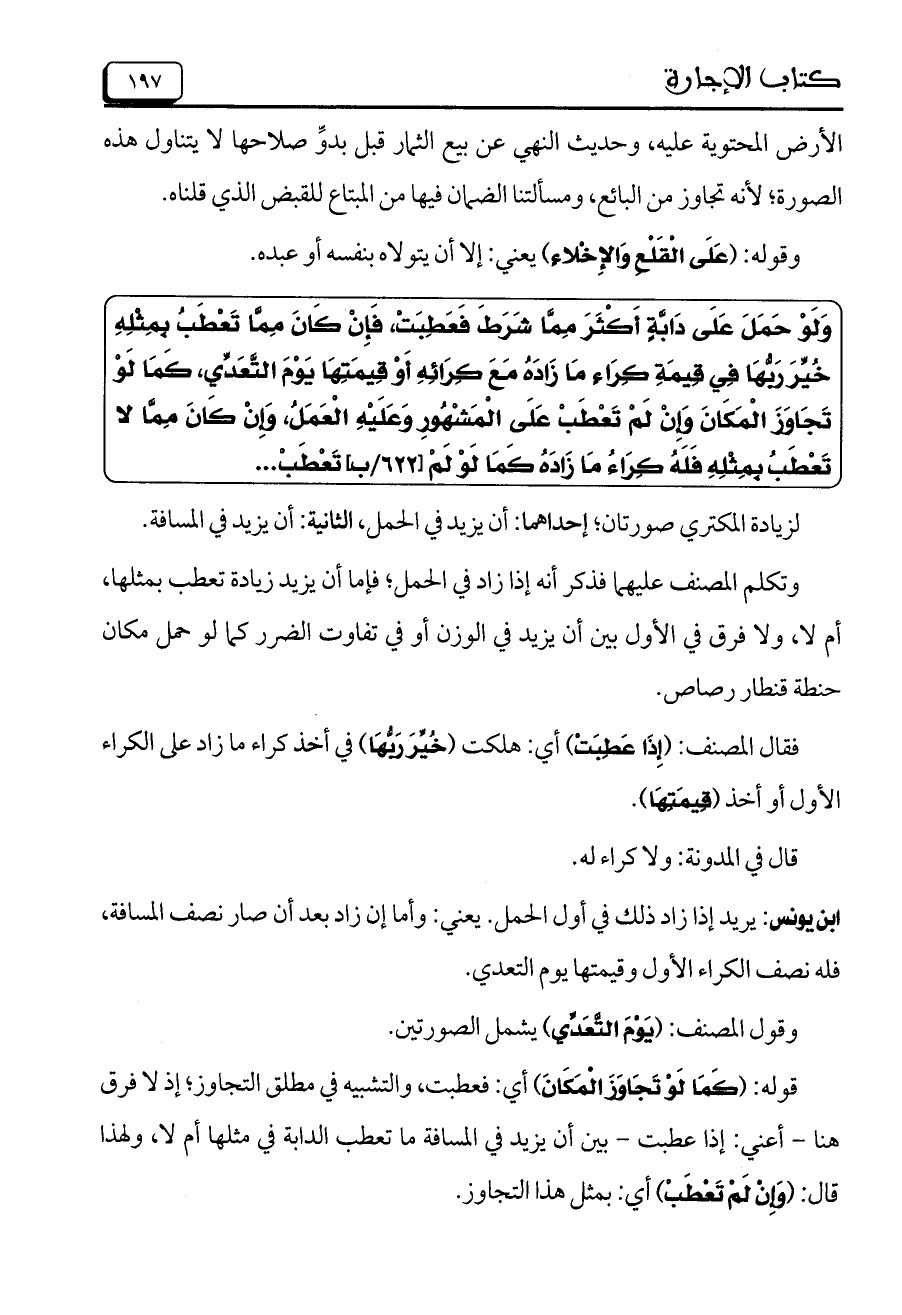 كتاب الإجارة ١٩٧
الأرض المحتوية عليه، وحديث النهي عن بيع الثمار قبل بدوِّ صلاحها لا يتناول هذه
الصورة؛ لأنه تجاوز من البائع، ومسألتنا الضمان فيها من المبتاع للقبض الذي قلناه.
وقوله: (عَلَى الْقَلْعِ وَالإِخْلاءِ) يعني: إلا أن يتولاه بنفسه أو عبده.
وَلَوْ حَمَلَ عَلَى دَابَّةٍ أَكْثَرَ مِمَّا شَرَطَ فَعَطِبَتْ، فَإِنْ كَانَ مِمَّا تَعْطَبُ بِمِثْلِهِ
خُيِّرَ رَبُّهَا فِي قِيمَةِ كِرَاءِ مَا زَادَهُ مَعَ كِرَائِهِ أَوْ قِيمَتِهَا يَوْمَ التَّعَدِّي، كَمَا لَوْ
تَجَاوَزَ الْمَكَانَ وَإِنْ لَمْ تَعْطَبْ عَلَى الْمَشْهُورِ وَعَلَيْهِ الْعَمَلُ، وَإِنْ كَانَ مِمَّا لا
تَعْطَبُ بِمِثْلِهِ فَلَهُ كِرَاءُ مَا زَادَهُ كَمَا لَوْ لَمْ [٦٢٢/ب] تَعْطَبْ...
لزيادة المكتري صورتان؛ إحداهما: أن يزيد في الحمل، الثانية: أن يزيد في المسافة.
وتكلم المصنف عليهما فذكر أنه إذا زاد في الحمل؛ فإما أن يزيد زيادة تعطب بمثلها،
أم لا، ولا فرق في الأول بين أن يزيد في الوزن أو في تفاوت الضرر كما لو حمل مكان
حنطة قنطار رصاص.
فقال المصنف: (إِذَا عَطِبَتْ) أي: هلكت (خُيِّرَ رَبُّهَا) في أخذ كراء ما زاد على الكراء
الأول أو أخذ (قِيمَتِهَا).
قال في المدونة: ولا كراء له.
ابن يونس: يريد إذا زاد ذلك في أول الحمل. يعني: وأما إن زاد بعد أن صار نصف المسافة،
فله نصف الكراء الأول وقيمتها يوم التعدي.
وقول المصنف: (يَوْمَ التَّعَدِّي) يشمل الصورتين.
قوله: (كَمَا لَوْ تَجَاوَزَ الْمَكَانَ) أي: فعطبت، والتشبيه في مطلق التجاوز؛ إذ لا فرق
هنا - أعني: إذا عطبت - بين أن يزيد في المسافة ما تعطب الدابة في مثلها أم لا، ولهذا
قال: (وَإِنْ لَمْ تَعْطَبْ) أي: بمثل هذا التجاوز.